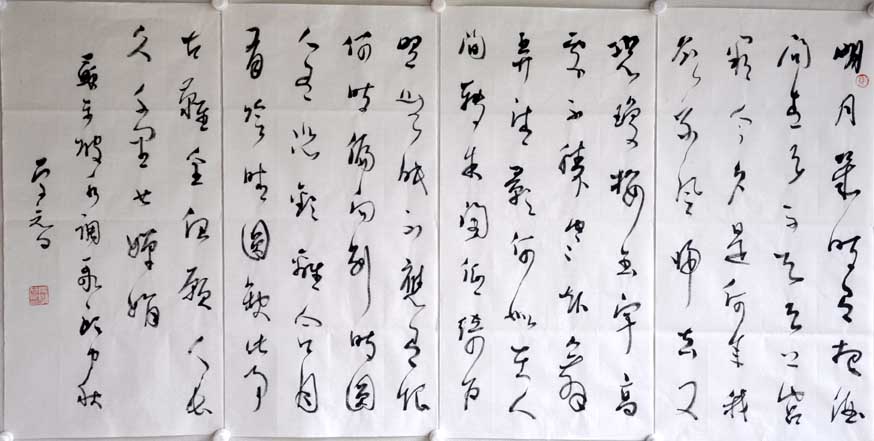 明月幾時有把酒
問青天不知天上宮
闕今夕是何年我
欲乘風歸去又
恐瓊樓玉宇高
處不勝寒起舞
弄清影何似在人
間轉朱閣低綺户
照無眠不應有恨
何時偏向別時圓
人有悲歡離合月
有陰晴圓缺此事
古難全但願人長
久千里共嬋娟
蘇東坡水調歌頭中秋